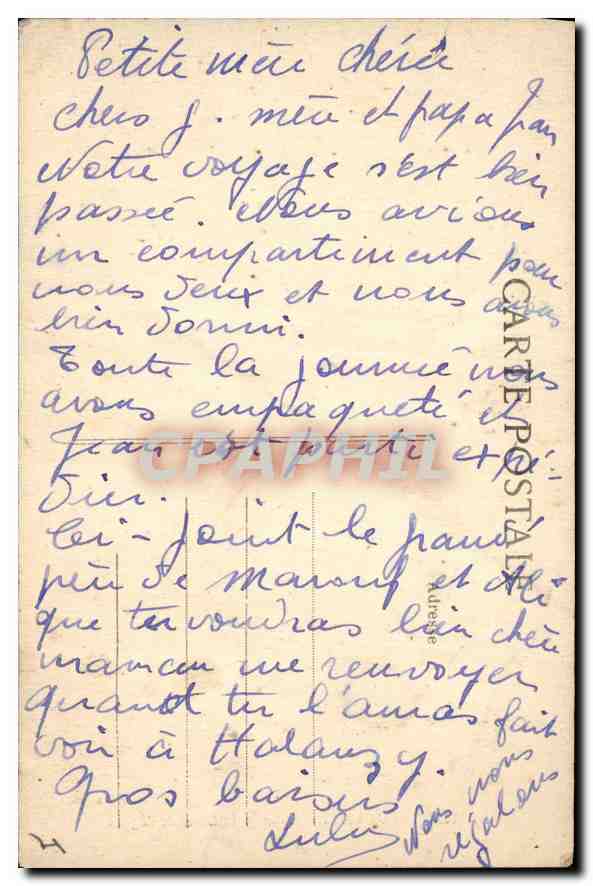 Petite mère chérie
chers g. mère et papa Jean
Notre voyage s'est bien
passé. Nous avions
un compartiment pour
nous deux et nous avons
bien dormi.
Toute la journée nous
avons empaqueté et
Jean est parti expé-
dier.
Ci-joint le grand
père de et Ali
que tu voudras bien chère
maman me renvoyer
quand tu l'auras fait
voir à Halanzy.
Gros baisers
Nous nous
régalons
CARTE POSTALE
Adresse
CPAPHIL